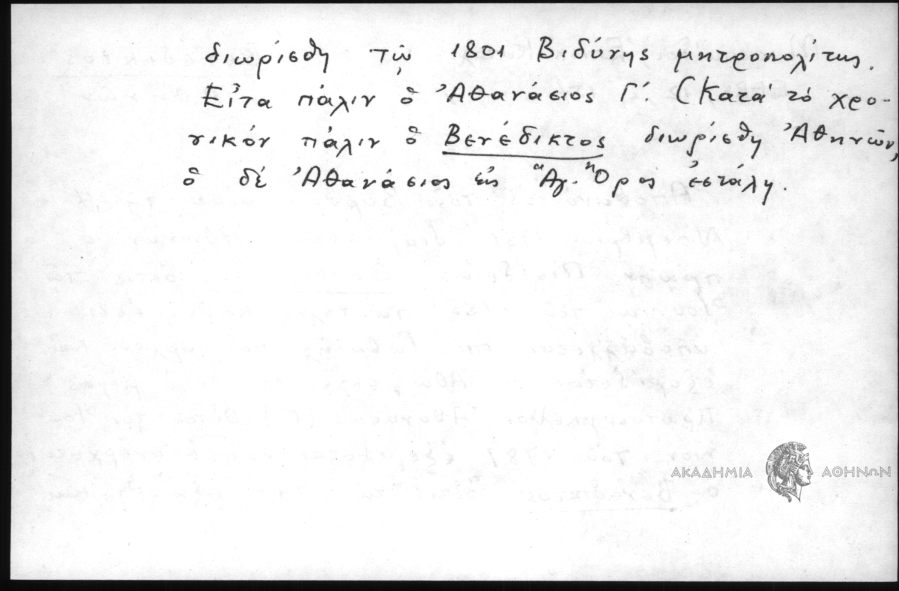 διωρίσθη τῷ 1801 Βιδύνης μητροπολίτης.
Εἶτα πάλιν ὁ Ἀθανάσιος Γ΄. (Κατά τό χρο-
νικόν πάλιν ὁ Βενέδικτος διωρίσθη Ἀθηνῶν,
ὁ δέ Ἀθανάσιος εἰς Ἅγ. Ὄρος ἐστάλη.
ΑΚΑΔΗΜΙΑ ΑΘΗΝΩΝ